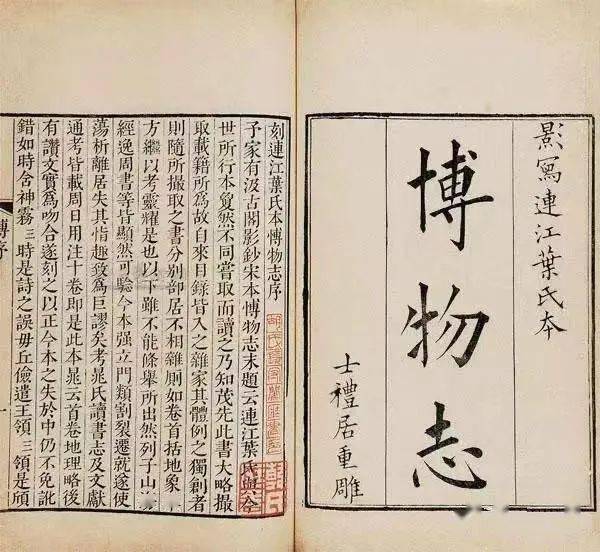 影寫連江葉氏本
博物志
士禮居重雕
刻連江葉氏本博物志序
予家有汲古閣影鈔宋本博物志末題云連江葉氏與今
世所行本敻然不同嘗取而讀之乃知茂先此書大略撮
取載籍所爲故自來目錄皆入之雜家其體例之獨創者
則隨所撮取之書分别部居不相雜厠如卷首括地象
方繼以考靈耀是也以下雖不能條舉所出然列子山
經逸周書等皆顯然可驗今本强立門類割裂遷就遂使
蕩析離居失其指趣致爲巨謬矣考晁氏讀書志及文獻
通考皆載周日用注十卷即是此本晁云首卷地理略後
有讚文實爲吻合遂刻之以正今本之失於中仍不免訛
錯如時含神霧三時是詩之誤毋丘儉遣王領三領是頎
博序
一